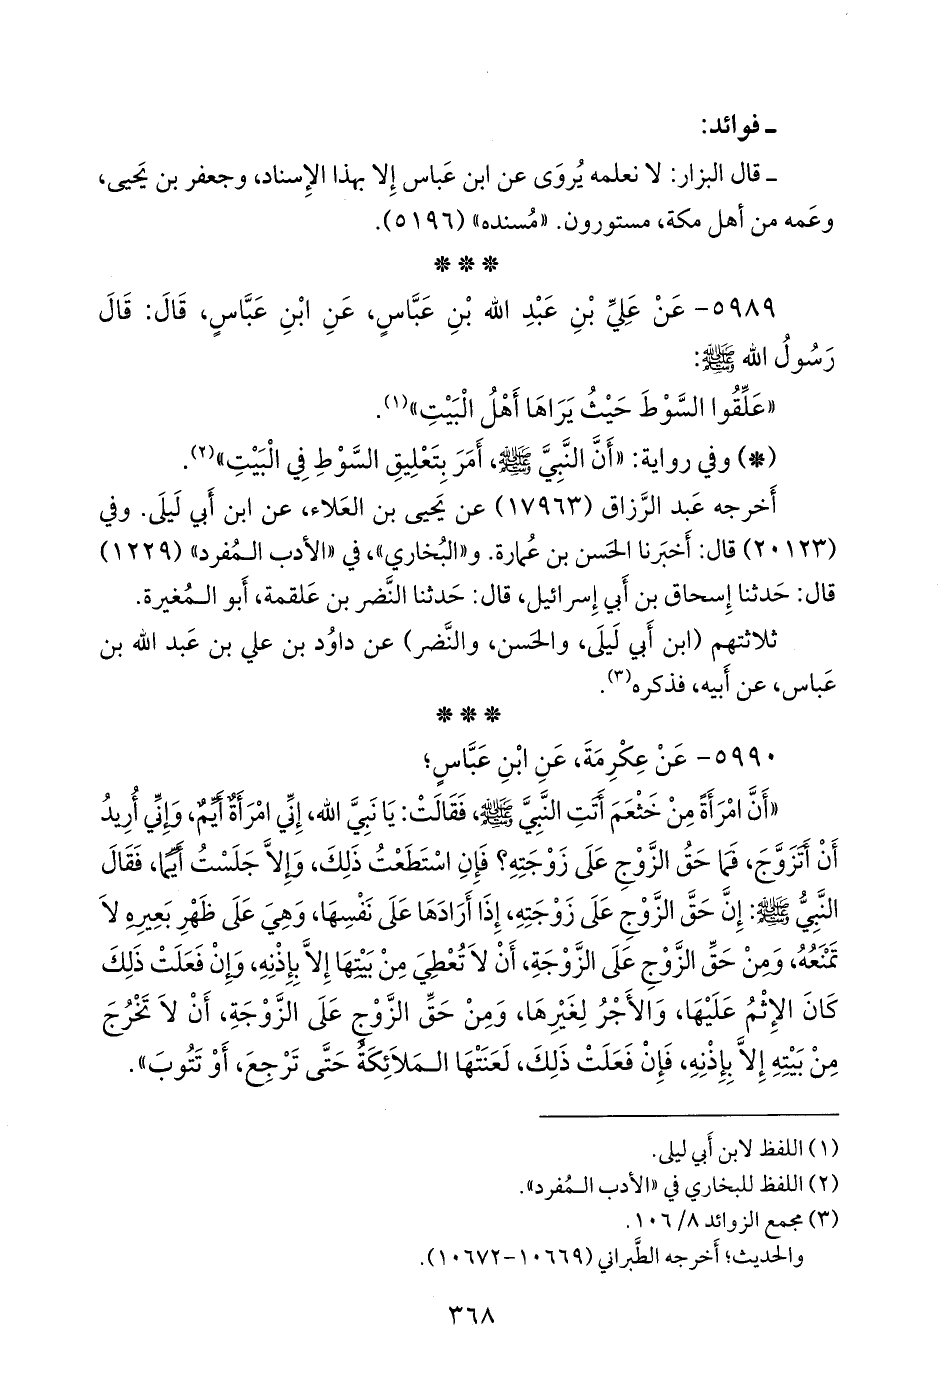 ـ فوائد:
ـ قال البزار: لا نعلمه يُروَى عن ابن عَباس إِلا بهذا الإِسناد، وجعفر بن يَحيى،
وعَمه من أهل مكة، مستورون. «مُسنده» (٥١٩٦).
* * *
٥٩٨٩- عَنْ عَلِيِّ بْنِ عَبْدِ الله بْنِ عَبَّاسٍ، عَنِ ابْنِ عَبَّاسٍ، قَالَ: قَالَ
رَسُولُ الله ﷺ:
«عَلِّقُوا السَّوْطَ حَيْثُ يَرَاهَا أَهْلُ الْبَيْتِ»(١).
(*) وفي رواية: «أَنَّ النَّبِيَّ ﷺ، أَمَرَ بِتَعْلِيقِ السَّوْطِ فِي الْبَيْتِ»(٢).
أَخرجه عَبد الرَّزاق (١٧٩٦٣) عن يَحيى بن العَلاء، عن ابن أَبي لَيلَى. وفي
(٢٠١٢٣) قال: أَخبَرنا الحَسن بن عُمارة. و«البُخاري»، في «الأَدب الـمُفرد» (١٢٢٩)
قال: حَدثنا إِسحاق بن أَبي إِسرائيل، قال: حَدثنا النَّضر بن عَلقمة، أَبو الـمُغيرة.
ثلاثتهم (ابن أَبي لَيلَى، والحَسن، والنَّضر) عن داوُد بن علي بن عَبد الله بن
عَباس، عن أَبيه، فذكره(٣).
* * *
٥٩٩٠- عَنْ عِكْرِمَةَ، عَنِ ابْنِ عَبَّاسٍ؛
«أَنَّ امْرَأَةً مِنْ خَثْعَمَ أَتَتِ النَّبِيَّ ﷺ، فَقَالَتْ: يَا نَبِيَّ الله، إِنِّي امْرَأَةٌ أَيِّمٌ، وَإِنِّي أُرِيدُ
أَنْ أَتَزَوَّجَ، فَمَا حَقُّ الزَّوْجِ عَلَى زَوْجَتِهِ؟ فَإِنِ اسْتَطَعْتُ ذَلِكَ، وَإِلاَّ جَلَسْتُ أَيِّمًا، فَقَالَ
النَّبِيُّ ﷺ: إِنَّ حَقَّ الزَّوْجِ عَلَى زَوْجَتِهِ، إِذَا أَرَادَهَا عَلَى نَفْسِهَا، وَهِيَ عَلَى ظَهْرِ بَعِيرِهِ لاَ
تَمْنَعُهُ، وَمِنْ حَقِّ الزَّوْجِ عَلَى الزَّوْجَةِ، أَنْ لاَ تُعْطِيَ مِنْ بَيْتِهَا إِلاَّ بِإِذْنِهِ، وَإِنْ فَعَلَتْ ذَلِكَ
كَانَ الإِثْمُ عَلَيْهَا، وَالأَجْرُ لِغَيْرِهَا، وَمِنْ حَقِّ الزَّوْجِ عَلَى الزَّوْجَةِ، أَنْ لاَ تَخْرُجَ
مِنْ بَيْتِهِ إِلاَّ بِإِذْنِهِ، فَإِنْ فَعَلَتْ ذَلِكَ، لَعَنَتْهَا الـمَلاَئِكَةُ حَتَّى تَرْجِعَ، أَوْ تَتُوبَ».
(١) اللفظ لابن أَبي ليلى.
(٢) اللفظ للبخاري في «الأدب الـمُفرد».
(٣) مجمع الزوائد ٨/ ١٠٦.
والحديث؛ أَخرجه الطَّبراني (١٠٦٦٩-١٠٦٧٢).
٣٦٨